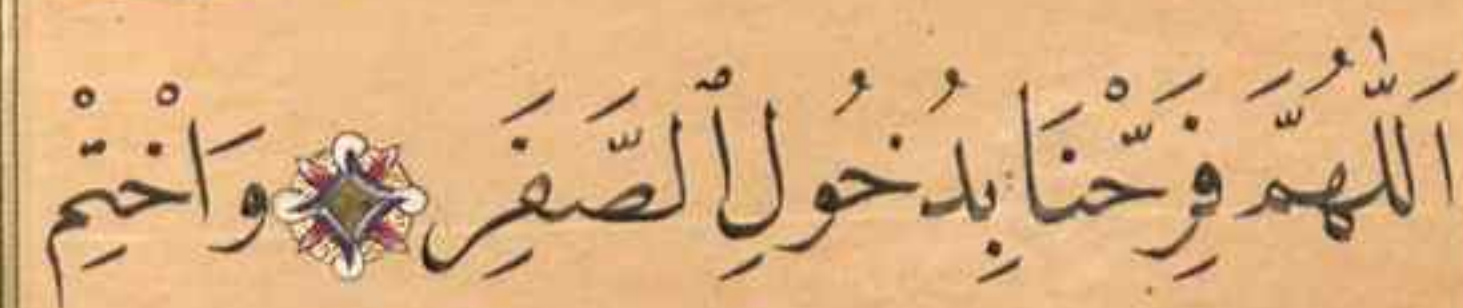 اَللّٰهُمَّ فَرِّحْنَا بِدُخُولِ ٱلصَّفَرِ وَاخْتِمْ